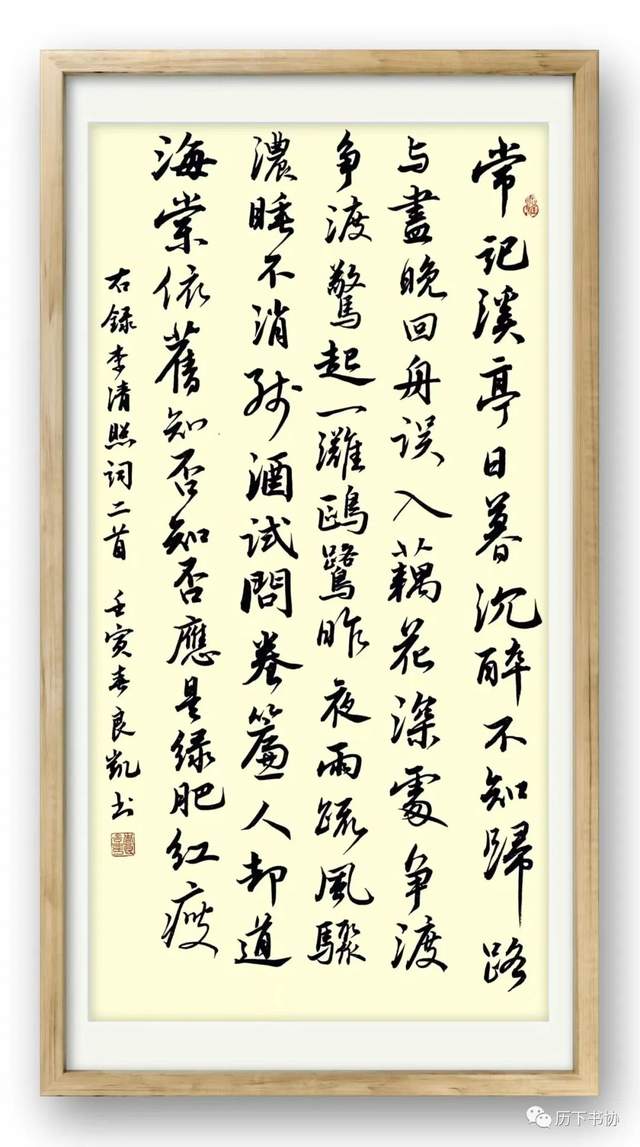 常记溪亭日暮沉醉不知歸路
与盡晚回舟误入藕花深處争
渡争渡驚起一灘鷗鷺昨夜雨疏風驟
濃睡不消残酒试問卷簾人却道
海棠依舊知否知否應是绿肥红瘦
右録李清照词二首 壬寅春良凯书
历下书协